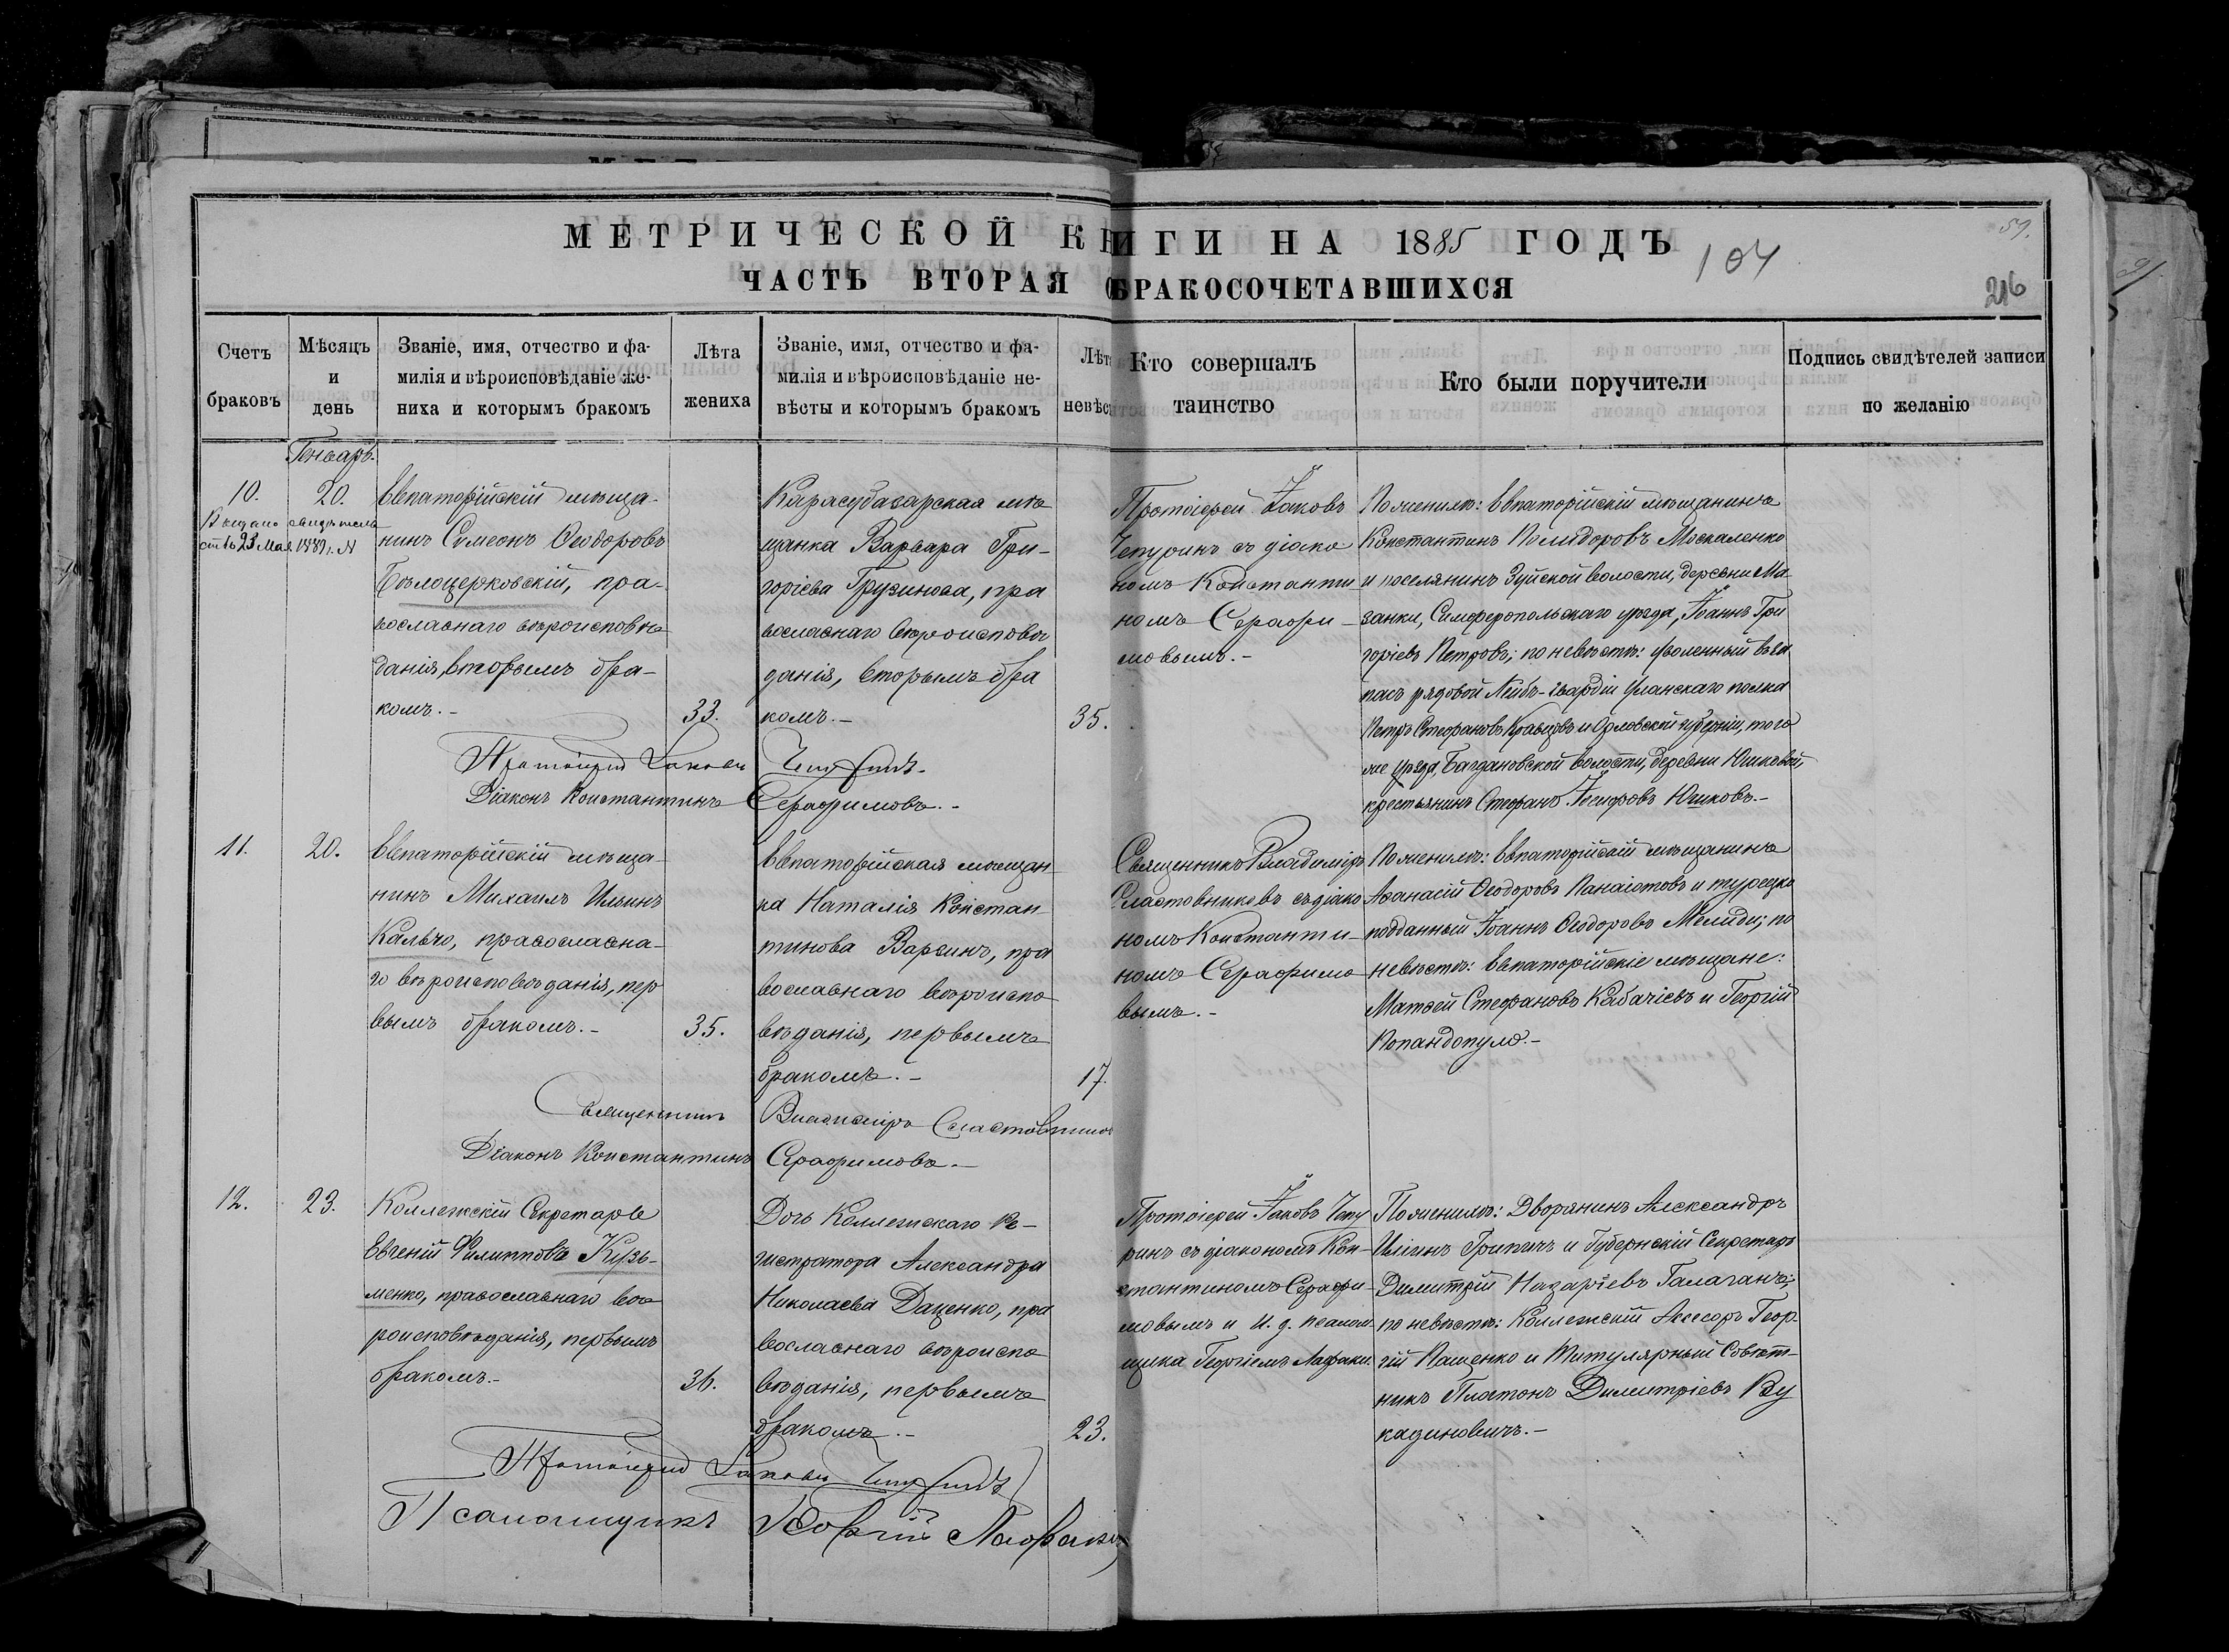 МЕТРИЧЕСКОЙ КНИГИ НА 1885 ГОДЪ
104
59.
ЧАСТЬ ВТОРАЯ О БРАКОСОЧЕТАВШИХСЯ
216
Счетъ
браковъ
Мѣсяцъ
и
день
Званіе, имя, отчество и фа-
милія и вѣроисповѣданіе же-
ниха и которымъ бракомъ
Лѣта
жениха
Званіе, имя, отчество и фа-
милія и вѣроисповѣданіе не-
вѣсты и которымъ бракомъ
Лѣта
невѣсты
Кто совершалъ
таинство
Кто были поручители
Подпись свидѣтелей записи
по желанію
Генварь.
10.
Выдано свидѣтель
ство 23 Мая 1889 г. №
20.
Евпаторійскій мѣща-
нинъ Сѵмеонъ Ѳеодоровъ
Бѣлоцерковскій, пра-
вославнаго вѣроисповѣ
данія, вторымъ бра-
комъ.-
33.
Карасубазарская мѣ
щанка Варвара Гри-
горіева Грузинова, пра
вославнаго вѣроисповѣ
данія, вторымъ бра
комъ.-
35.
Протоіерей Іаковъ
Чепуринъ съ діако
номъ Константи-
номъ Серафи-
мовымъ.-
По женихѣ: Евпаторійскій мѣщанинъ
Константинъ Полидоровъ Москаленко
и поселянинъ Зуйской волости, деревни Ма
занки, Симферопольскаго уѣзда, Іоаннъ Гри
горіевъ Петровъ; по невѣстѣ: уволенный въ за
пасъ рядовой Лейбъ-гвардіи Уланскаго полка
Петръ Стефановъ Кравцовъ и Орловской губерніи, того
же уѣзда, Багдановской волости, деревни Юшковой,
крестьянинъ Стефанъ Іосифовъ Юшковъ.-
Протоіерей Іаковъ Чепуринъ.
Діаконъ Константинъ Серафимовъ.-
11.
20.
Евпаторійскій мѣща-
нинъ Михаилъ Ильинъ
Кальчо, православна-
го вѣроисповѣданія, пер
вымъ бракомъ.-
35.
Евпаторійская мѣщан
ка Наталія Констан-
тинова Варсинъ, пра
вославнаго вѣроиспо
вѣданія, первымъ
бракомъ.-
17.
Священникъ Владиміръ
Сластовниковъ съ діако
номъ Константи-
номъ Серафимо
вымъ.-
По женихѣ: Евпаторійскій мѣщанинъ
Аѳанасій Ѳеодоровъ Панаіотовъ и турецко
подданный Іоаннъ Ѳеодоровъ Мелиди; по
невѣстѣ: Евпаторійскіе мѣщане:
Матѳей Стефановъ Кабачіевъ и Георгій
Попандопуло.-
Священникъ Владиміръ Сластовников
Діаконъ Константинъ Серафимовъ.-
12.
23.
Коллежскій Секретарь
Евгеній Филипповъ Кузь-
менко, православнаго вѣ
роисповѣданія, первымъ
бракомъ.-
36.
Дочь Коллежскаго Ре-
гистратора Александра
Николаева Даценко, пра
вославнаго вѣроиспо
вѣданія, первымъ
бракомъ.-
23.
Протоіерей Іаковъ Чепу
ринъ съ діакономъ Кон-
стантиномъ Серафи-
мовымъ и и. д. псалом-
щика Георгіемъ Лафаки.
По женихѣ: Дворянинъ Александръ
Иліинъ Грипичъ и Губернскій Секретарь
Димитрій Назаріевъ Галаганъ;
по невѣстѣ: Коллежскій Ассесоръ Геор-
гій Пащенко и Титулярный Совѣт-
никъ Платонъ Димитріевъ Ву
кадиновичъ.-
Протоіерей Іаковъ Чепуринъ
Псаломщикъ Георгій Лафаки